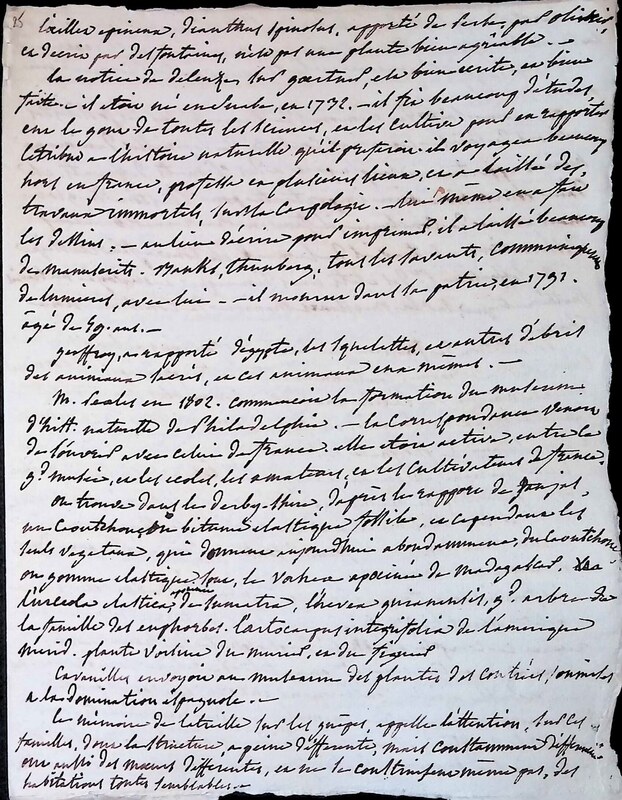 35
l'œillet épineux, dianthus spinosus, apporté de Perse, par olivier,
et décrit par desfontaines, n'est pas une plante bien agréable. —
la notice de deleuze, sur gærtner, est bien écrite, et bien
faite. — il étoit né en suabe, en 1732. — il fit beaucoup d'études,
eut le gout de toutes les sciences, et les cultiva pour en rapporter
le tribut a l'histoire naturelle qu'il préféroit. il voyagea beaucoup
hors en france, professa en plusieurs lieux, et a laissé des
travaux immortels, sur la carpologie. — lui même en a fait
les dessins. — au lieu d'écrire pour imprimer, il a laissé beaucoup
de manuscrits. Banks, thunberg, tous les savants, communiquoient
de lumieres, avec lui. — il mourut dans sa patrie, en 1791.
âgé de 59. ans. —
geoffroy, a rapporté d'égypte, les squelettes, et autres débris
des animaux sacrés, et ces animaux eux mêmes. —
M. Peales en 1802. commencoit la formation du museum
d'hist. naturelle de Philadelphie. — la correspondance venoit
de s'ouvrir avec celui de france. elle étoit active, entre le
gd. musée, et les écoles, les amateurs, et les cultivateurs de france.
on trouve dans le derby-shire, d'après le rapport de faujas,
un caoutchouc ou bitume élastique fossile, et cependant les
seuls végétaux, qui donnent aujourd'hui abondamment du caoutchouc
ou gomme élastique sont, le vahea apocinée de Madagascar.
l'urceola elastica, apocinée de sumatra, l'hevea guianensis, gd. arbre de
la famille des euphorbes. l'artocarpus integrifolia de l'amérique
mérid. plante voisine du murier, et du figuier.
Cavanilles envoyoit au museum des plantes des contrées, soumises
a la domination espagnole. —
le mémoire de latreille sur les guêpes, appelle l'attention, sur ces
familles, dont la structure, a peine différente, mais constamment différente
ont aussi des mœurs différentes, et ne se construisent même pas, des
habitations toutes semblables. —